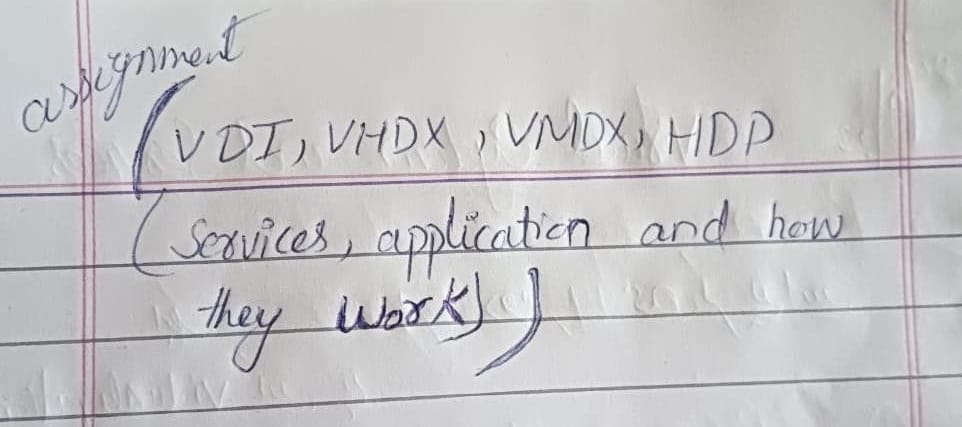 assignment
(VDI, VHDX, VMDX, HDD
(Services, application and how
they work))